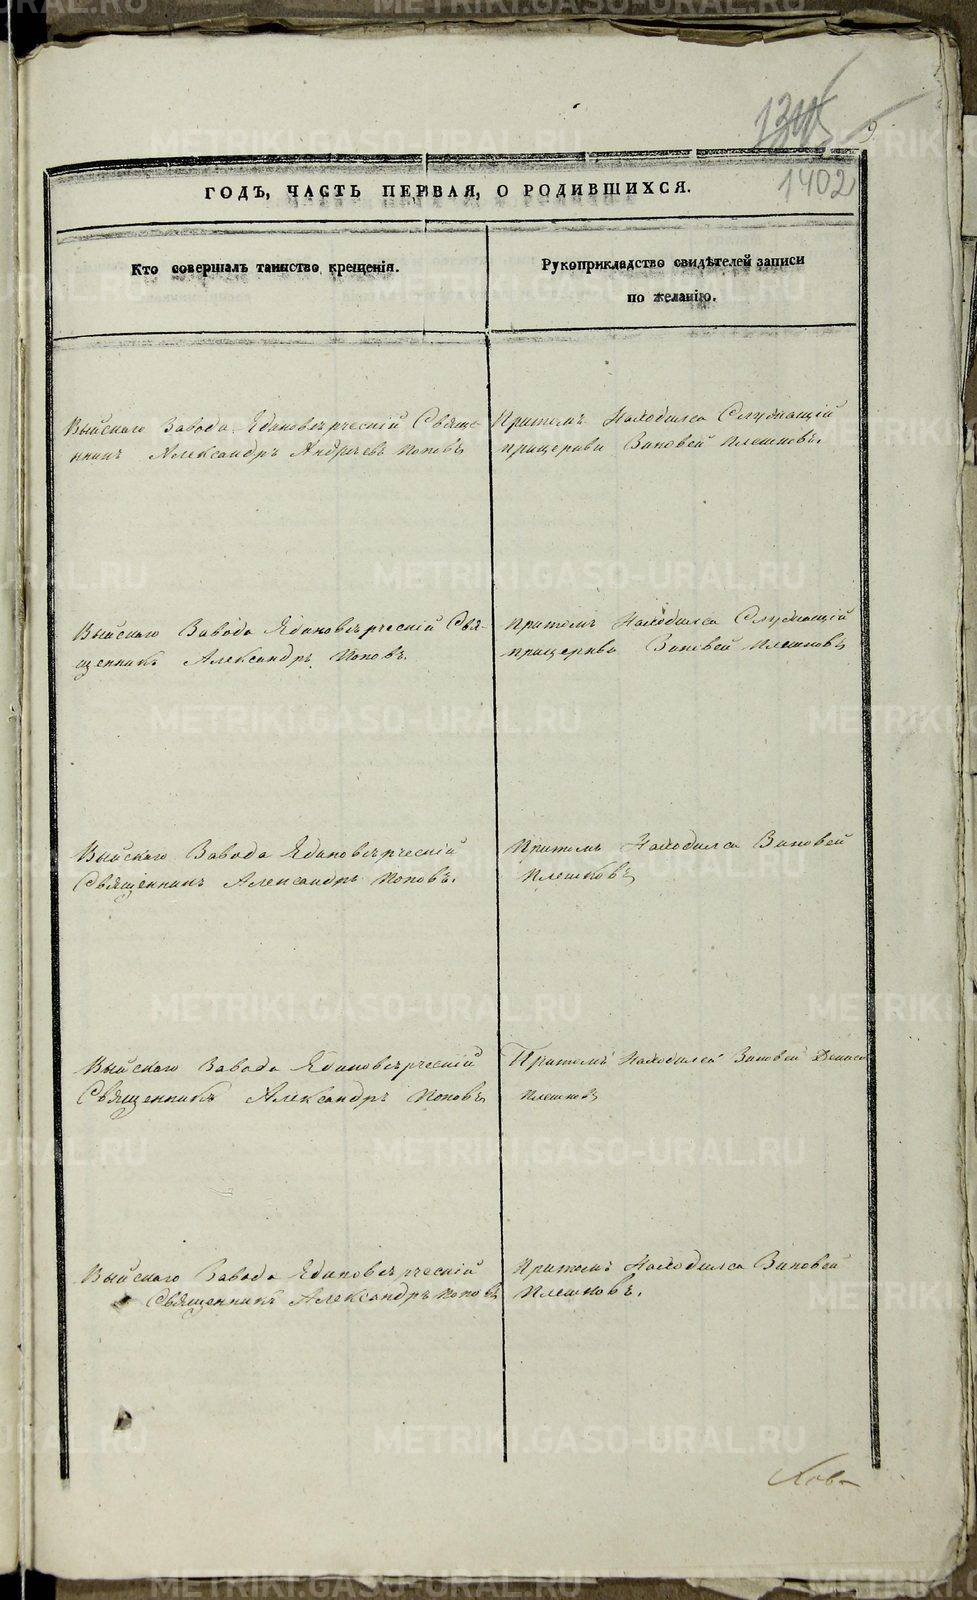 1402
ГОДЪ, ЧАСТЬ ПЕРВАЯ, О РОДИВШИХСЯ.
Кто совершалъ таинство крещенія.
Рукоприкладство свидѣтелей записи
по желанію.
Выйскаго Завода Единовѣрческій Свяще-
нникъ Александръ Андреевъ Поповъ
Притомъ Находился Служащій
прицеркви Зиновей Плешковъ.
Выйскаго Завода Единовѣрческій Свя-
щенникъ Александръ Поповъ.
Притомъ Находился Служащій
прицеркви Зиновей Плешковъ
Выйскаго Завода Единовѣрческій
Священникъ Александръ Поповъ.
Притомъ Находился Зиновей
Плешковъ
Выйскаго Завода Единовѣрческій
Священникъ Александръ Поповъ
Притомъ Находился Зиновей
Плешковъ
Выйскаго Завода Единовѣрческій
Священникъ Александръ Поповъ
Притомъ Находился Зиновей
Плешковъ.
METRIKI.GASO-URAL.RU